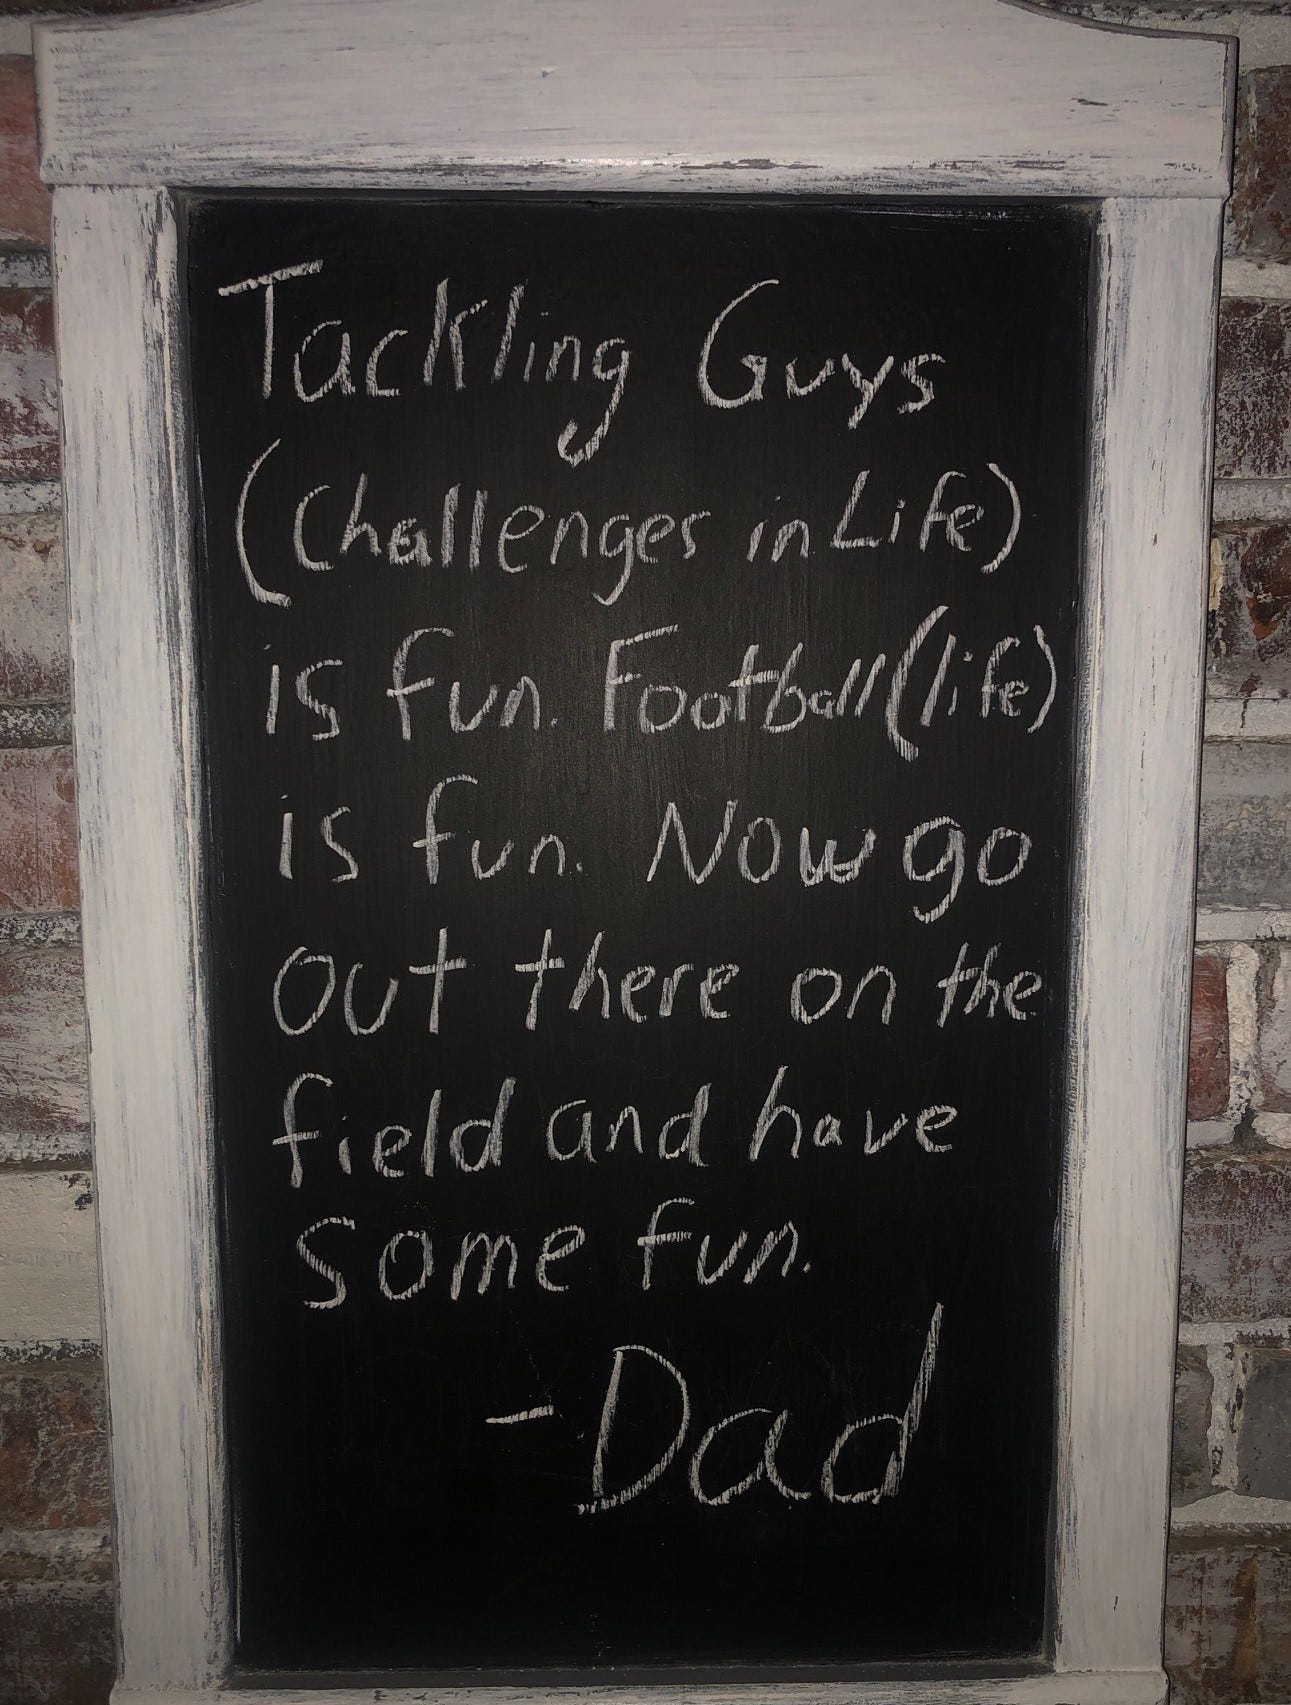 Tackling Guys
(Challenges in Life)
is fun. Football (life)
is fun. Now go
out there on the
field and have
some fun.
- Dad